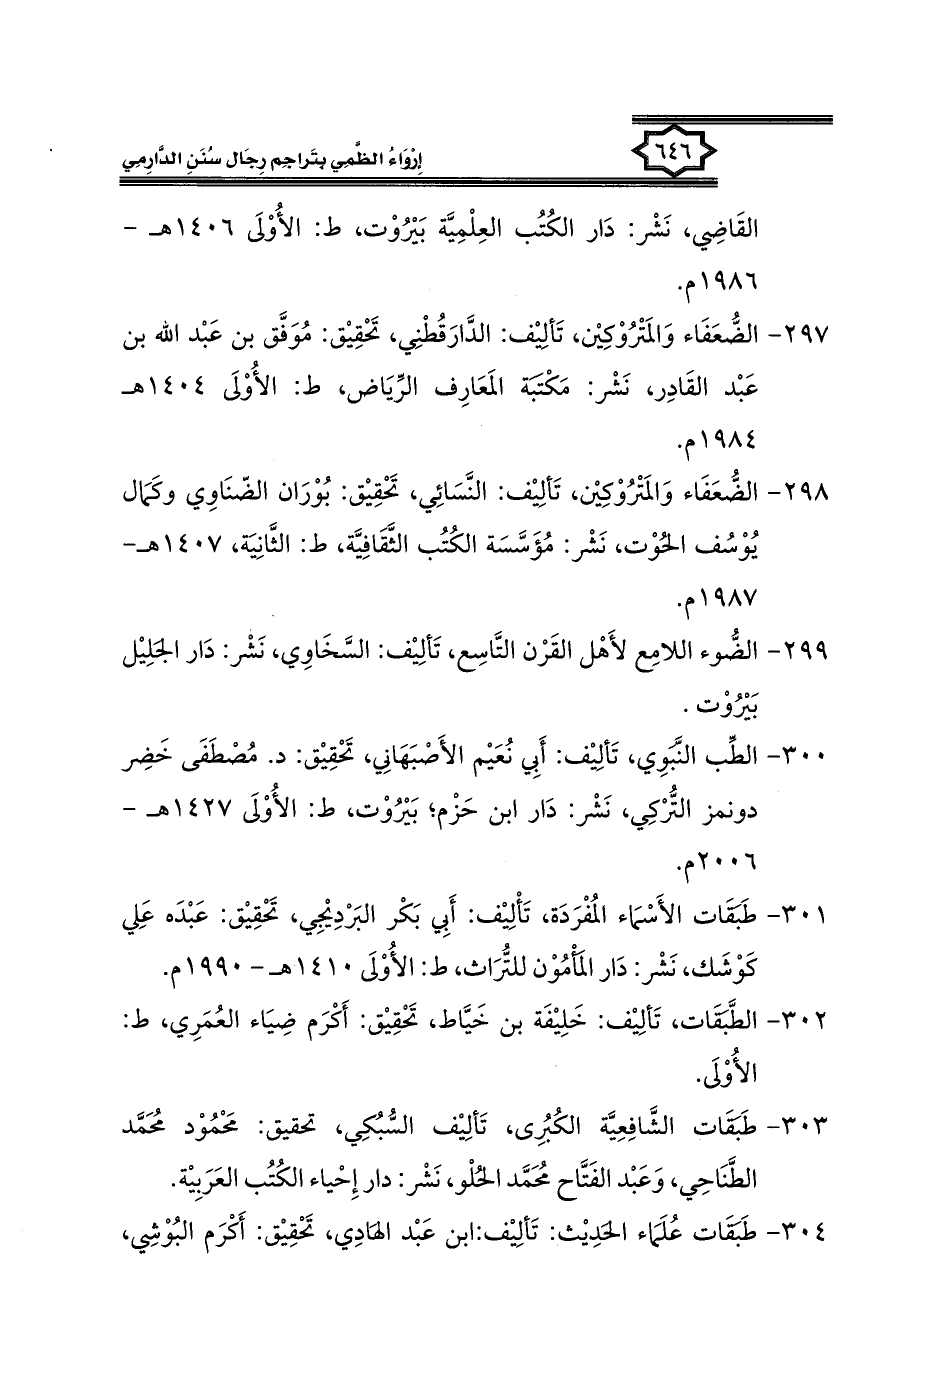 ٦٤٦
إِرْوَاءُ الظَّمِي بتَراجِم رِجَال سُنَنِ الدَّارِمِي
القَاضِي، نَشْر: دَار الكُتُب العِلْمِيَّة بَيْرُوْت، ط: الأُوْلَى ١٤٠٦هـ -
١٩٨٦م.
٢٩٧- الضُّعَفَاء وَالمَتْرُوْكِيْن، تَأليْف: الدَّارَقُطْنِي، تَحْقِيْق: مُوَفَّق بن عَبْد الله بن
عَبْد القَادِر، نَشْر: مَكْتَبَة المَعَارِف الرِّيَاض، ط: الأُوْلَى ١٤٠٤هـ
١٩٨٤م.
٢٩٨- الضُّعَفَاء وَالمَتْرُوْكِيْن، تَأليْف: النَّسَائِي، تَحْقِيْق: بُوْرَان الضّنَاوِي وكَمَال
يُوْسُف الحُوْت، نَشْر: مُؤَسَّسَة الكُتُب الثَّقَافِيَّة، ط: الثَّانِيَة، ١٤٠٧هـ-
١٩٨٧م.
٢٩٩- الضُّوء اللامِع لأَهْل القَرْن التَّاسِع، تَأليْف: السَّخَاوِي، نَشْر: دَار الجَلِيْل
بَيْرُوْت .
٣٠٠- الطِّب النَّبَوِي، تَأليْف: أَبِي نُعَيْم الأَصْبَهَانِي، تَحْقِيْق: د. مُصْطَفَى خَضِر
دونمز التُّرْكِي، نَشْر: دَار ابن حَزْم؛ بَيْرُوْت، ط: الأُوْلَى ١٤٢٧هـ -
٢٠٠٦م.
٣٠١- طَبَقَات الأَسْمَاء المُفْرَدَة، تَأْلِيْف: أَبِي بَكْر البَرْدِيْجِي، تَحْقِيْق: عَبْدَه عَلِي
كَوْشَك، نَشْر: دَار المَأْمُوْن للتُّرَاث، ط: الأُوْلَى ١٤١٠هـ - ١٩٩٠م.
٣٠٢- الطَّبَقَات، تَأليْف: خَلِيْفَة بن خَيَّاط، تَحْقِيْق: أَكْرَم ضِيَاء العُمَرِي، ط:
الأُوْلَى.
٣٠٣- طَبَقَات الشَّافِعِيَّة الكُبْرَى، تَأليْف السُّبْكِي، تحقيق: مَحْمُوْد مُحَمَّد
الطَّنَاحِي، وَعَبْد الفَتَّاح مُحَمَّد الحُلْو، نَشْر: دار إِحْيَاء الكُتُب العَرَبِيْة.
٣٠٤- طَبَقَات عُلَمَاء الحَدِيْث: تَأليْف:ابن عَبْد الهَادِي، تَحْقِيْق: أَكْرَم البُوْشِي،